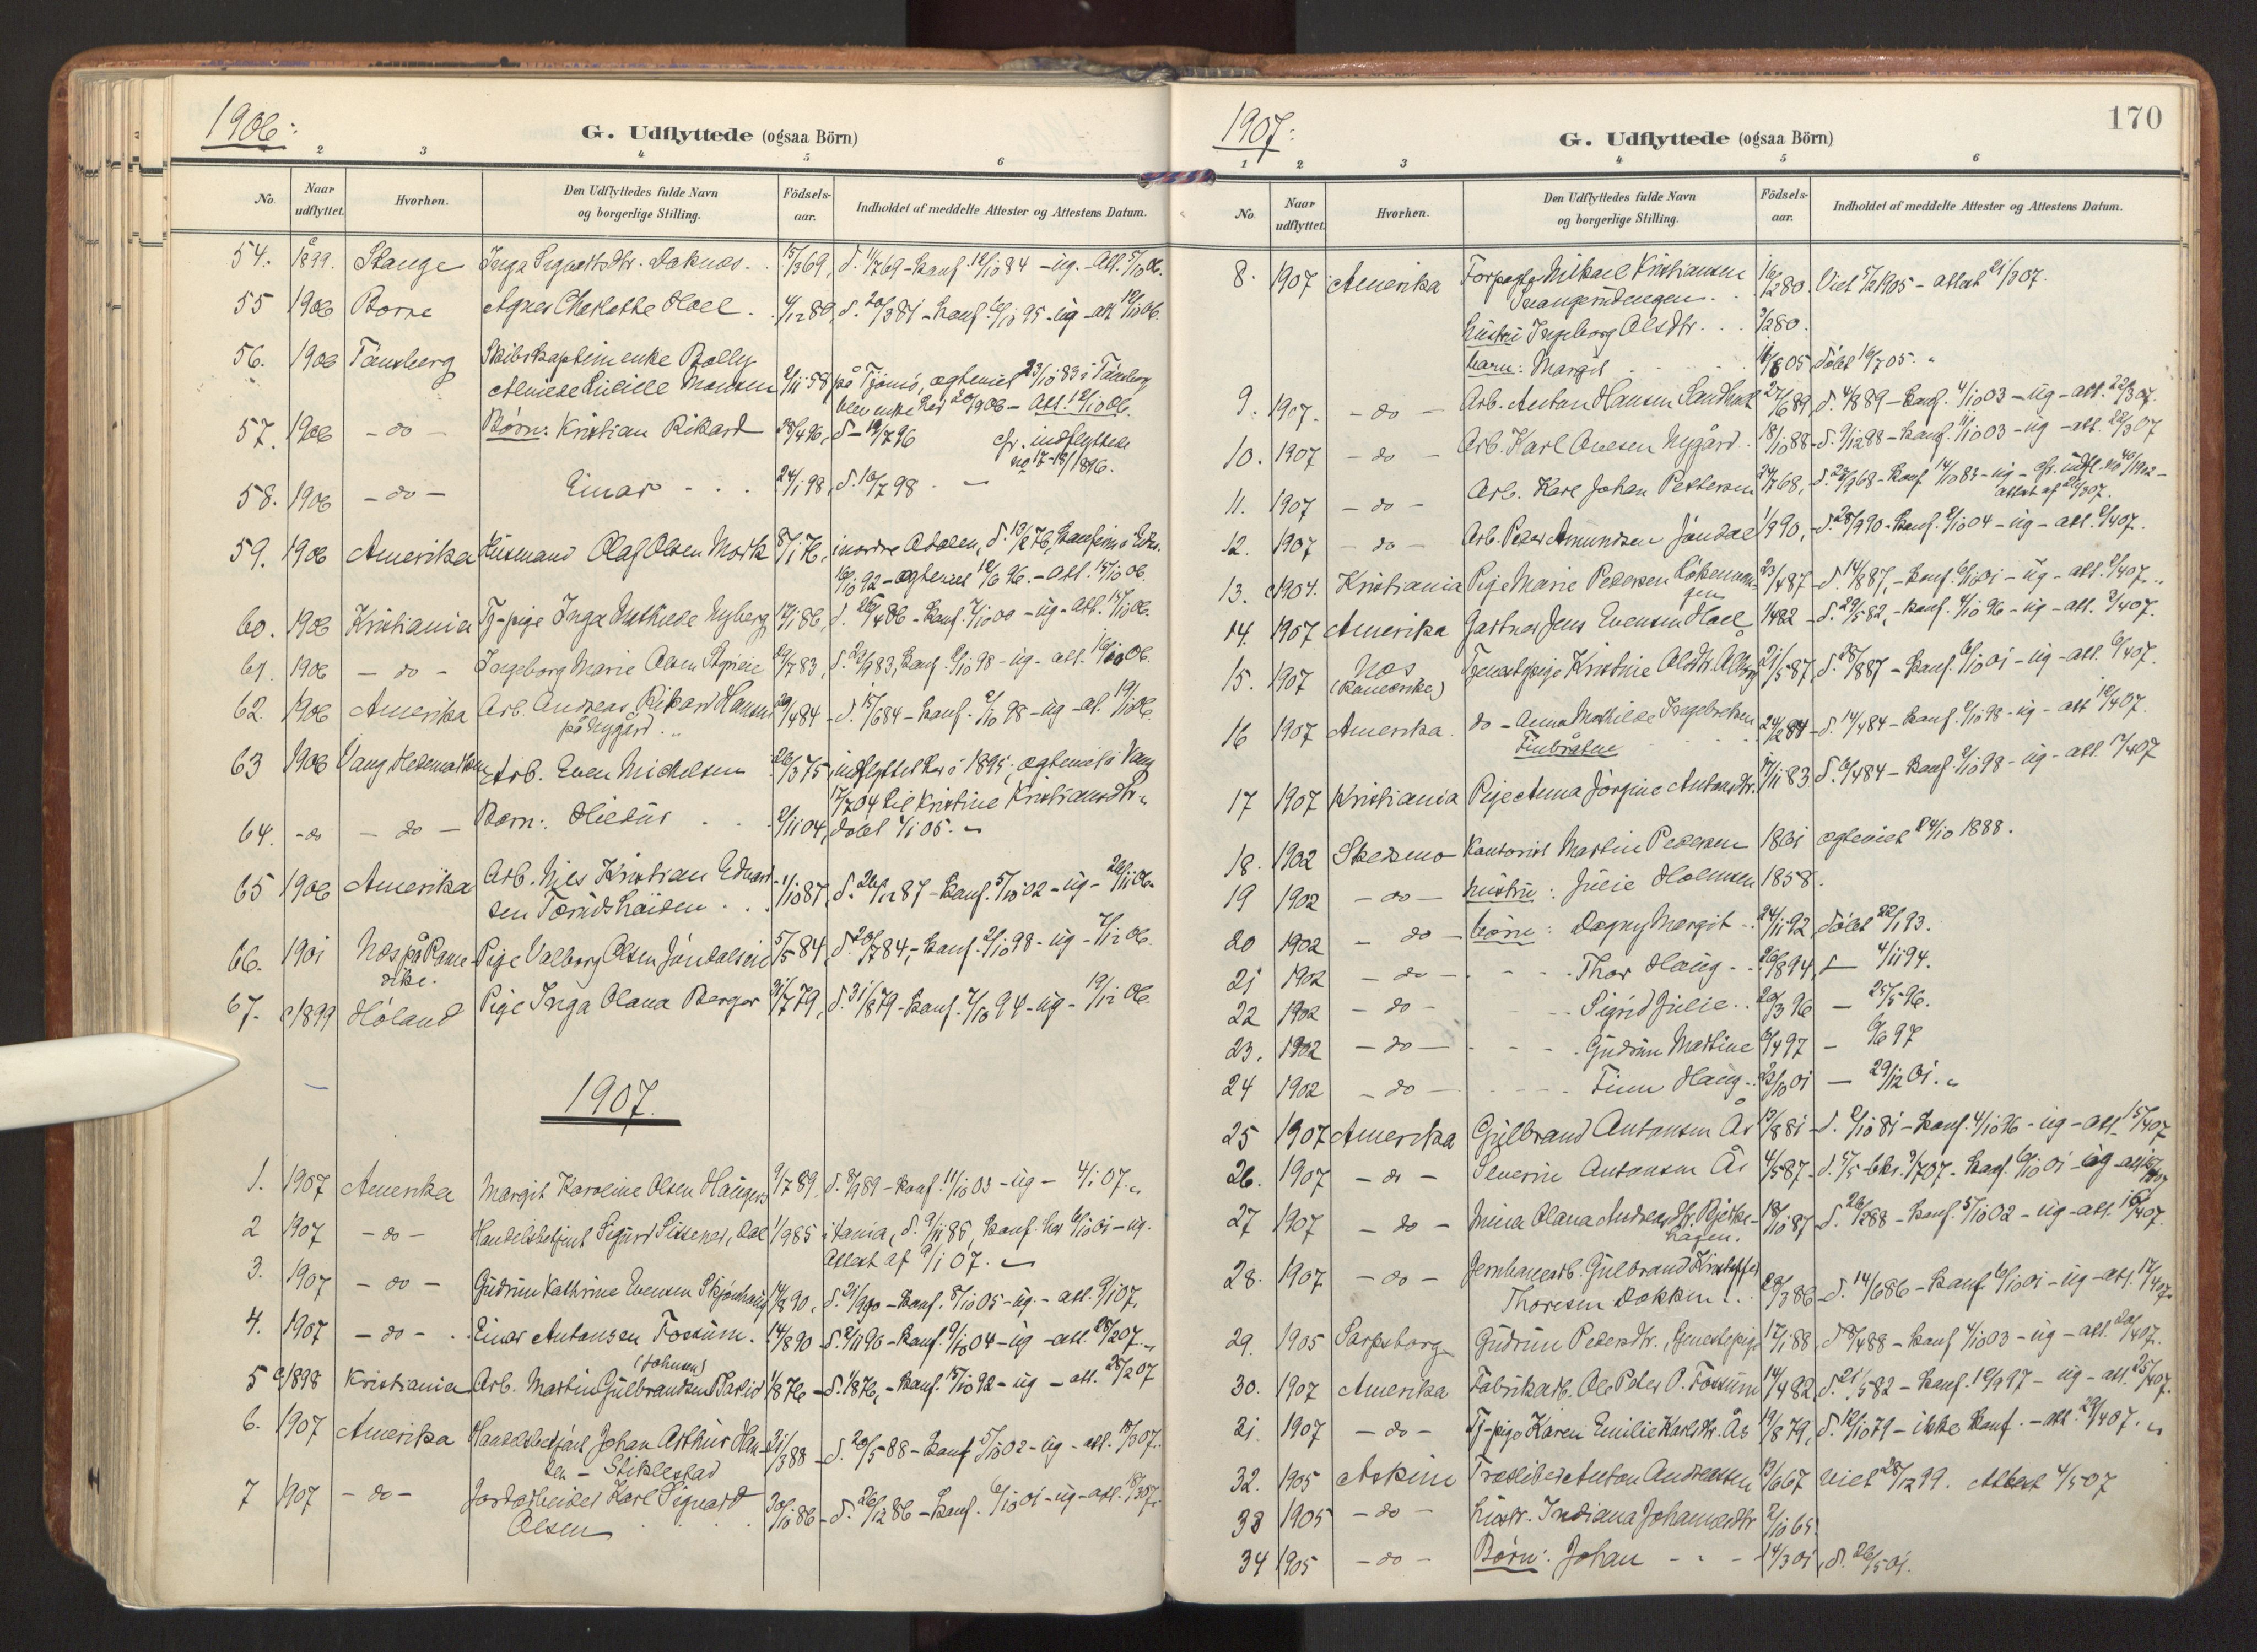 1906:
G. Udflyttede (ogsaa Börn)
2 3 4 5 6
No. Naar udflyttet. Hvorhen. Den Udflyttedes fulde Navn og borgerlige Stilling. Födsels-aar. Indholdet af meddelte Attester og Attestens Datum.
54. 1899. Stange Inga 15/3 69, d. 11/7 69 - Konf. 12/10 84 - ug. - Att. 5/10 06.
55 1906 Borre Agnes Charlotte Hoel 4/12 89, konf. 6/10 95 - ug - att 12/10 06.
56. 1906 Tönsberg Skibskaptein enke Bolly
2/11 58 på Tjömö, ægteviet 23/10 83 i Tönsberg
blev enke her 20/9 06 - Att. 12/10 06.
57. 1906 - do - Börn: Kristian Rikard 28/4 96, d - 19/7 96 cfr. indflyttede
no 17-18/1896.
58. 1906 - do - Einar 24/1 98, d. 10/7 98
59. 1906 Amerika Husmand Olaf Olsen Mork 8/1 76,
16/10 92 - ægteviet 12/6 96. - Att. 15/10 06.
60. 1906 Kristiania Tj-pige Inga Mathilde Nyberg 17/1 86, d. 26/4 86 - Konf. 7/10 00 - ug - Att. 15/10 06.
61. 1906 - do - Ingeborg Marie Olsen 29/7 83, Konf. 2/10 98 - ug - att. 16/10 06.
62. 1906 Amerika Arb. Andreas Rikard Hansen 29/4 84 - d. 15/6 84 - Konf. 2/10 98 - ug - at.
på Nygård.
63 1906 Vang Hedemarken Arb. Even Michelsen 26/3 75, indflyttet her i 1895, ægteviet i Vang
17/7 04 til Kristine Kristiansdtr.
64. - do - do - Barn: 2/11 04, döbt 1/1 05.
65 1906 Amerika Arb. Nils Kristian Edvard-
sen 1/10 87, d. 26/12 87 - Konf. 5/10 02 - ug - 26/11 06.
66. 1901 Næs på Rome-
rike. Pige Valborg Olsen 5/5 84, d. 20/7 84, - Konf. 2/10 98 - ug - 7/12 06.
67. c/1899 Höland Pige Inga Olava Berger 21/7 79, d. 31/8 79 - Konf. 7/10 94 - ug - 19/12 06.
1907.
1. 1907 Amerika Margit Karoline Olsen 9/7 89, d. 8/9 89 - Konf. 11/10 03 - ug - 4/1 07.
2 1907 - do - Handelsbetjent Sigurd Sissener, 1/9 85 d. 9/11 85, Konf. her 6/10 01 - ug.
Attest af 9/1 07.
3. 1907 - do - Gudrun Kathrine Evensen Skjönhaug 14/8 90, d. 21/9 90 - Konf. 8/10 05 - ug. - att. 9/1 07.
4. 1907 - do - Einar Antonsen Fossum. 14/8 90 - Konf. 9/10 04 - ug - att. 28/2 07.
(Johnsen)
5 c/1898 Kristiania Arb. Martin Gulbrandsen 1/8 76 - Konf. 15/10 92 - ug - att. 28/2 07
6. 1907 Amerika Handelsbetjent Johan Arthur Han-
sen - Stiklestad 21/3 88 - d. 20/5 88 - Konf 5/10 02 - ug - att. 15/3 07.
7 1907 - do - Jordarbeider Karl Sigvard
Olsen 30/10 86 - d. 26/12 86 - Konf. 6/10 01 - ug - att. 18/3 07.
1907:
G. Udflyttede (ogsaa Börn)
170
1 2 3 4 5 6
No. Naar udflyttet. Hvorhen. Den Udflyttedes fulde Navn og borgerlige Stilling. Födsels-aar. Indholdet af meddelte Attester og Attestens Datum.
8. 1907 Amerika Forpagter Mikael Kristiansen
16/2 80. Viet 5/2 1905 - attest 21/3 07.
hustru Ingeborg Olsdtr. 9/2 80.
barn: Margit 05 döbt 16/7 05.
9. 1907. - do - Arb. Anton Hansen 27/6 89, d. 4/8 89 - Konf. 4/10 03 - ug - att. 22/3 07.
10. 1907 - do - Arb. Karl Nygård. 18/10 88 - d. 9/12 88 - Konf. 11/10 03 - ug - att. 22/3 07
11. 1907 - do - Arb. Karl Johan Pettersen 24/7 68, Konf 14/10 83 - ug - cfr. indfl. no 40/1902 -
attest af
12. 1907 - do - Arb. Peter Amundsen 1/9 90, - d. 28/9 90 - Konf. 2/10 04 - ug - att. 2/4 07.
13. c/1904. Kristiania Pige Marie Pedersen 23/4 87 - d. 14/8 87, - Konf. 6/10 01 - ug - att. 2/4 07.
14. 1907 Amerika Gartner Jens Evensen Hoel 1/4 82 - d. 29/5 82, - Konf. 4/10 96 - ug - att. 2/4 07.
15. 1907 Næs
(Romerike) Tjenestepige Kristine Olsdtr. 21/5 87, d. 28/8 87 - Konf. 6/10 01 - ug - att. 6/4 07.
16 1907 Amerika. do - Anna Mathilde Ingebretsen
84 - d. 14/4 84 - Konf. 2/10 98 - ug - att 10/4 07.
17 1907 Kristiania Pige Anna Jörgine Antonsdtr. 17/11 83 d. 6/4 84 - Konf. 2/10 98 - ug - att. 11/4 07
18. 1902 Skedsmo Kontorist Martin Pedersen 1861 ægteviet 24/10 1888.
19 1902 - do - hustru: Julie Holmsen 1858.
20 1902 - do - börn: Dagny Margit 24/11 92, döbt 22/1 93.
21 1902 - do - Thor Haug 26/8 94, 4/11 94.
22 1902 - do - Sigrid Julie 20/3 96 - 25/5 96.
23. 1902 - do - Gudrun Martine 6/4 97 - 6/6 97
24 1902 - do - Finn Haug 23/10 01 - 29/12 01.
25 1907 Amerika Gulbrand Antonsen Ås 13/8 81 - d. 2/10 81 - Konf. 4/10 96 - ug - att. 15/4 07
26. 1907 - do - Severin Antonsen Ås 4/5 87 - Konf. 6/10 01 - ug - att.
27 1907 - do - Mina Olava Andreasdtr. Bjerke-
hagen. 18/10 87 - d. 26/2 88 - Konf. 5/10 02 - ug - att. 16/4 07.
28. 1907 - do - Jernbanearb. Gulbrand Kristoffer
Thoresen Dokken 29/3 86 - d. 14/6 86 - Konf. 6/10 01 - ug - att. 17/4 07.
29. 1905 Sarpsborg Gudrun Pedersdtr., tjenestepige 17/1 88, Konf 4/10 03 - ug - att. 20/4 07.
30. 1907 Amerika Fabrikarb. Ole Peter O. Fossum 14/4 82, d. 21/5 82 - Konf. 97 - ug - att. 25/4 07.
31. 1907 - do - Tj-pige Karen Emilie Karlsdtr. Ås 19/8 79, d. 12/10 79 - ikke Konf. - att. 29/4 07.
32. 1905 Askim Træsliber Anton Andreassen 13/6 67 viet 28/12 99. Attest 4/5 07
33 1905 - do - hustr. Indiana Johannesdtr 2/10 65.
34 1905 - do - Börn: Johan - - - 14/3 01, d. 26/5 01.